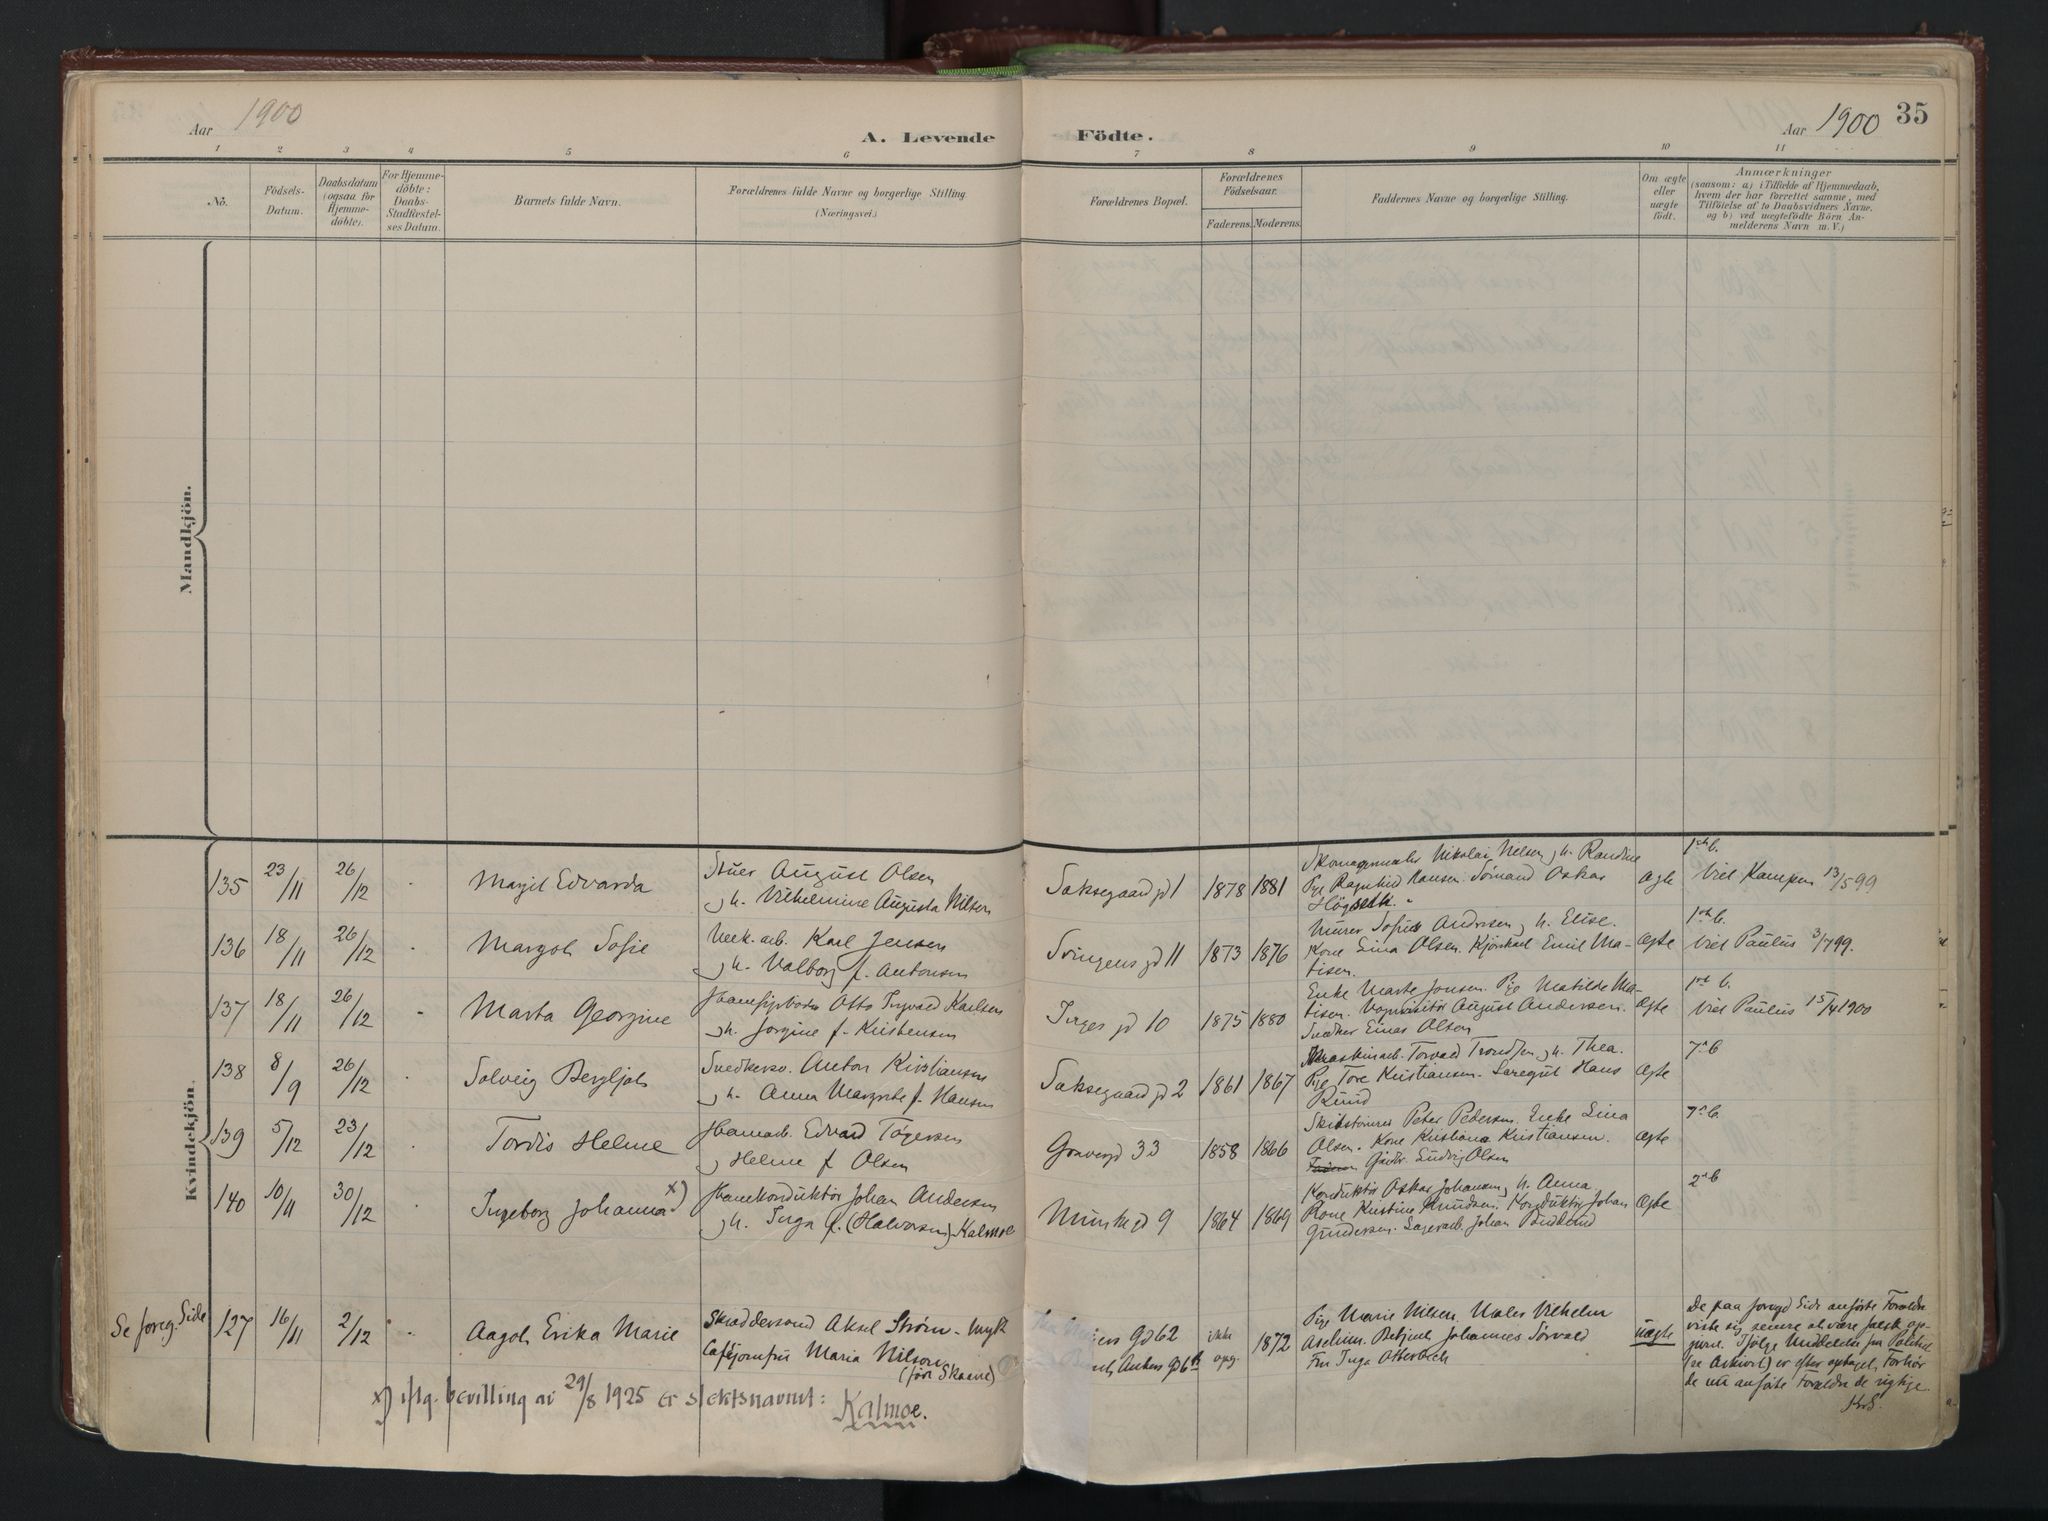 Aar 1900
A. Levende Födte.
Aar 1900
35
1 2 3 4 5 6 7 8 9 10 11
No.
Födsels-
Datum.
Daabsdatum
(ogsaa for
Hjemme-
döbte).
For Hjemme-
döbte:
Daabs-
Stadfæstel-
ses Datum.
Barnets fulde Navn.
Forældrenes fulde Navne og borgerlige Stilling.
(Næringsvei.)
Forældrenes Bopæl.
Forældrenes
Födselsaar.
Faderens. Moderens.
Faddernes Navne og borgerlige Stilling.
Om ægte
eller
uægte
födt.
Anmærkninger
(saasom: a) i Tilfælde af Hjemmedaab,
hvem der har forrettet samme, med
Tilföielse af to Daabsvidners Navne,
og b) ved uægtefödte Börn An-
melderens Navn m. V.)
Mandkjön.
Kvindekjön.
135 23/11 26/12 Margit Edvarda
Stuer August Olsen
h. Vilhelmine Augusta Nilsen
Saksegaard gd 1 1878 1881
Nikolai Nelsen, h. Randine
Pige Ragnhild Hansen. Oskar
Ægte
Viet Kampen 13/5 99
136 18/11 26/12 Margoth Sofie
Verk. arb. Karl Jensen
h. Valborg f. Antonsen
Svingens gd 11 1873 1876
Murer Andersen, h. Elise.
Kone Lina Olsen. Emil Ma-
tisen.
Ægte
Viet Paulus 3/7 99.
137 18/11 26/12 Marta Georgine
Otto Ingvald Karlsen
h. Jorgine f. Kristensen
Inges gd 10 1875 1880
Enke Marte Jonsen. Pige Matilde Ma-
tisen. August Andersen.
Snedker Einar Olsen
Ægte
Viet Paulus 15/4 1900
138 8/9 26/12 Solveig Bergljot
Snedkersv. Anton Kristiansen
h. Anna Margrete f. Hansen
Saksegaard gd 2 1861 1867
Maskinarb. Torvald Trondsen, h. Thea.
Pige Tore Kristiansen. Hans
Rund
Ægte
139 5/12 23/12 Tordis Helene
Edvard Tøgersen
Helene f. Olsen
Gravergd 33 1858 1866
Peter Pedersen. Enke Lina
Olsen. Kone Kristiana Kristiansen.
Ludvig Olsen
Ægte
140 10/11 30/12 Ingeborg Johanna x)
Banekonduktør Johan Andersen
h. Inga f. (Halvorsen) Kalmoe
Munke gd 9 1864 1869
Konduktør Oskar Johansen, h. Anna
Kone Kristine Knudsen. Konduktør Johan
Gundersen. Lagerarb. Johan
Ægte
Se foreg. Side 127 16/11 2/12 Aagoth Erika Marie
Skræddersvend Aksel Strøm - ugift
Cafejomfru Maria Nilson
(før Skaane)
Gd 62 ikke opg. 1872
Pige Marie Nilsen. Maler Vilhelm
Betjent Johannes Sørvald
Fru Inga Otterbech
Uægte
De paa foregd Side anførte Forældre
viste sig senere at være falsk op-
givne. Ifølge Meddelelse fra Politiet
(se Arkivet) er efter optaget Forhør
de nu anførte Forældre de rigtige.
x) iflg. bevilling av 29/8 1925 er slektsnavnet:
Kalmoe.